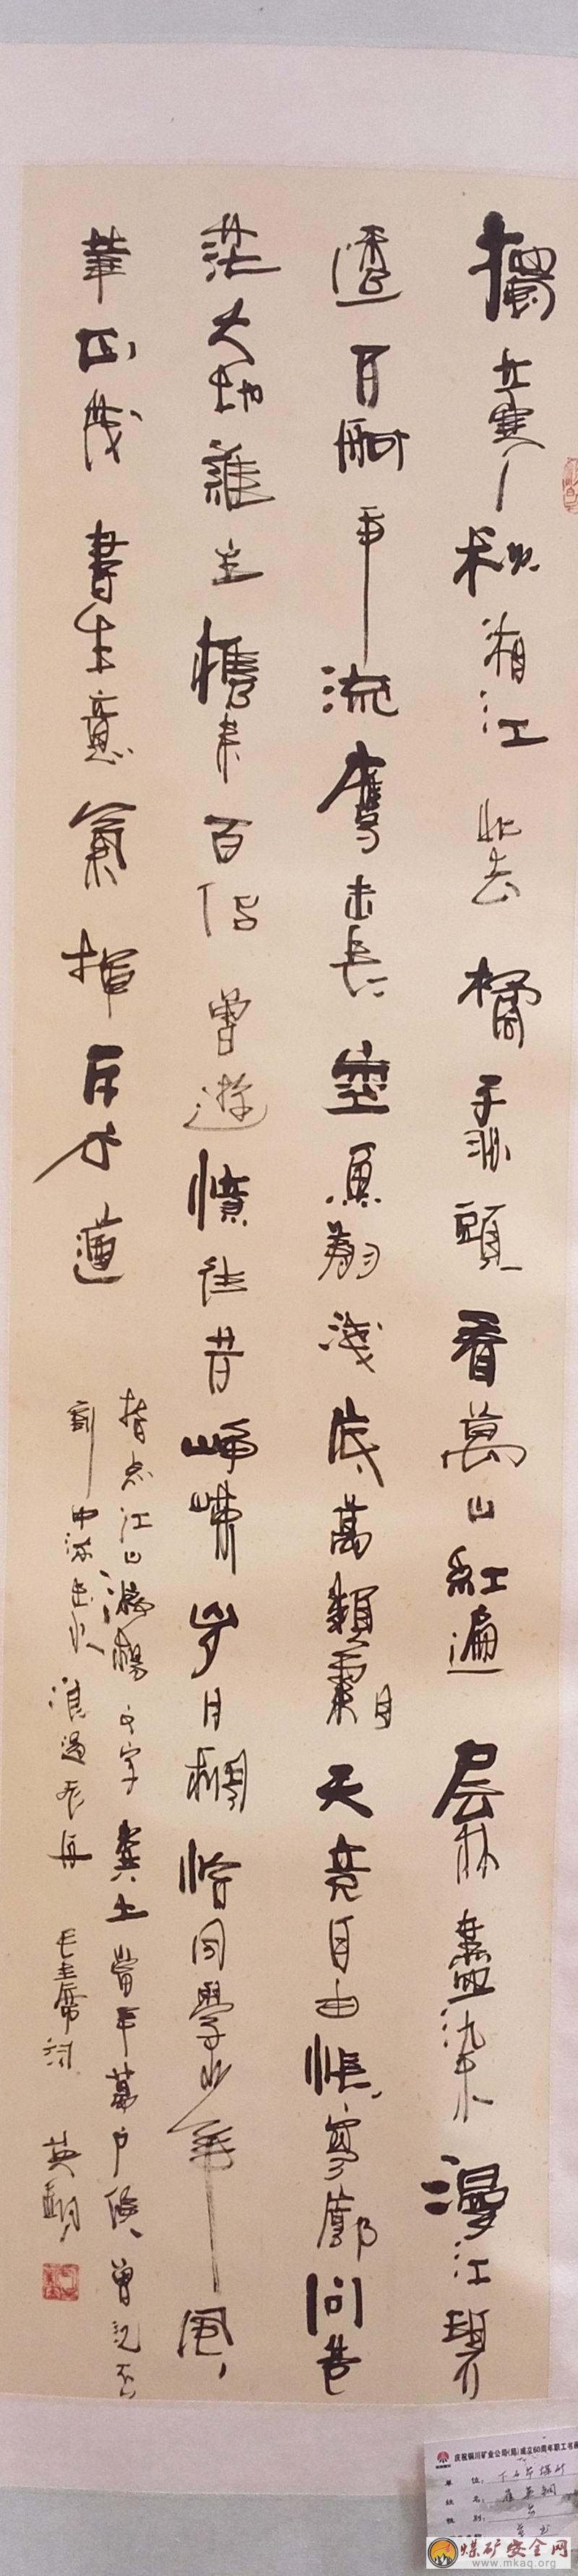 獨立寒秋湘江北去橘子洲頭看萬山紅遍层林盡染漫江碧
透百舸爭流鷹击長空魚翔淺底萬類霜天竞自由悵寥廓问苍
茫大地誰主攜来百侣曾遊憶往昔崢嶸岁月稠恰同學少年風
華正茂書生意氣揮斥方遒
指点江山激揚文字糞土當年萬户侯曾记否
到中流击水浪遏飛舟 毛主席詞 英
庆祝铜川矿业公司(局)成立60周年职工书
单 位: 下石节煤矿
姓 名: 崔英
性 别:
煤矿安全网
www.mkaq.org